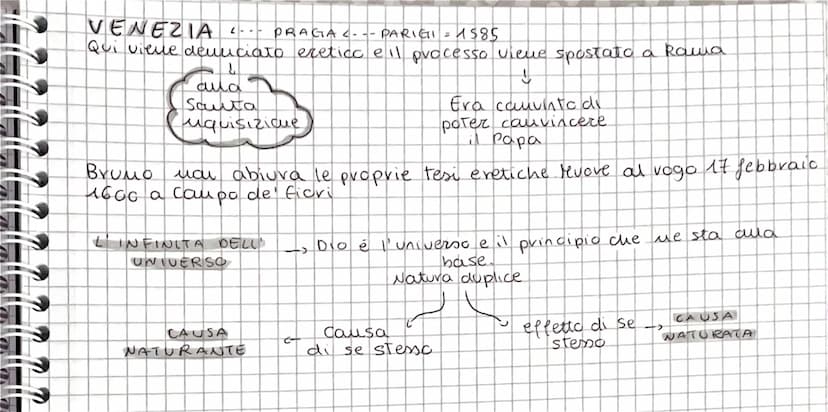 VENEZIA <--- PRAGA <--- PARIGI = 1585
Qui viene denunciato eretico e il processo viene spostato a Roma
↓ ↓
alla
Santa
inquisizione
Era convinto di
poter convincere
il Papa
Bruno non abiura le proprie tesi eretiche Muore al rogo 17 febbraio
1600 a Campo de' fiori
L'INFINITA DELL'
UNIVERSO
→ DIO é l'universo e il principio che ne sta alla
base.
Natura duplice
CAUSA
NATURANTE
← Causa
di se stesso
effetto di se →
stesso
CAUSA
NATURATA